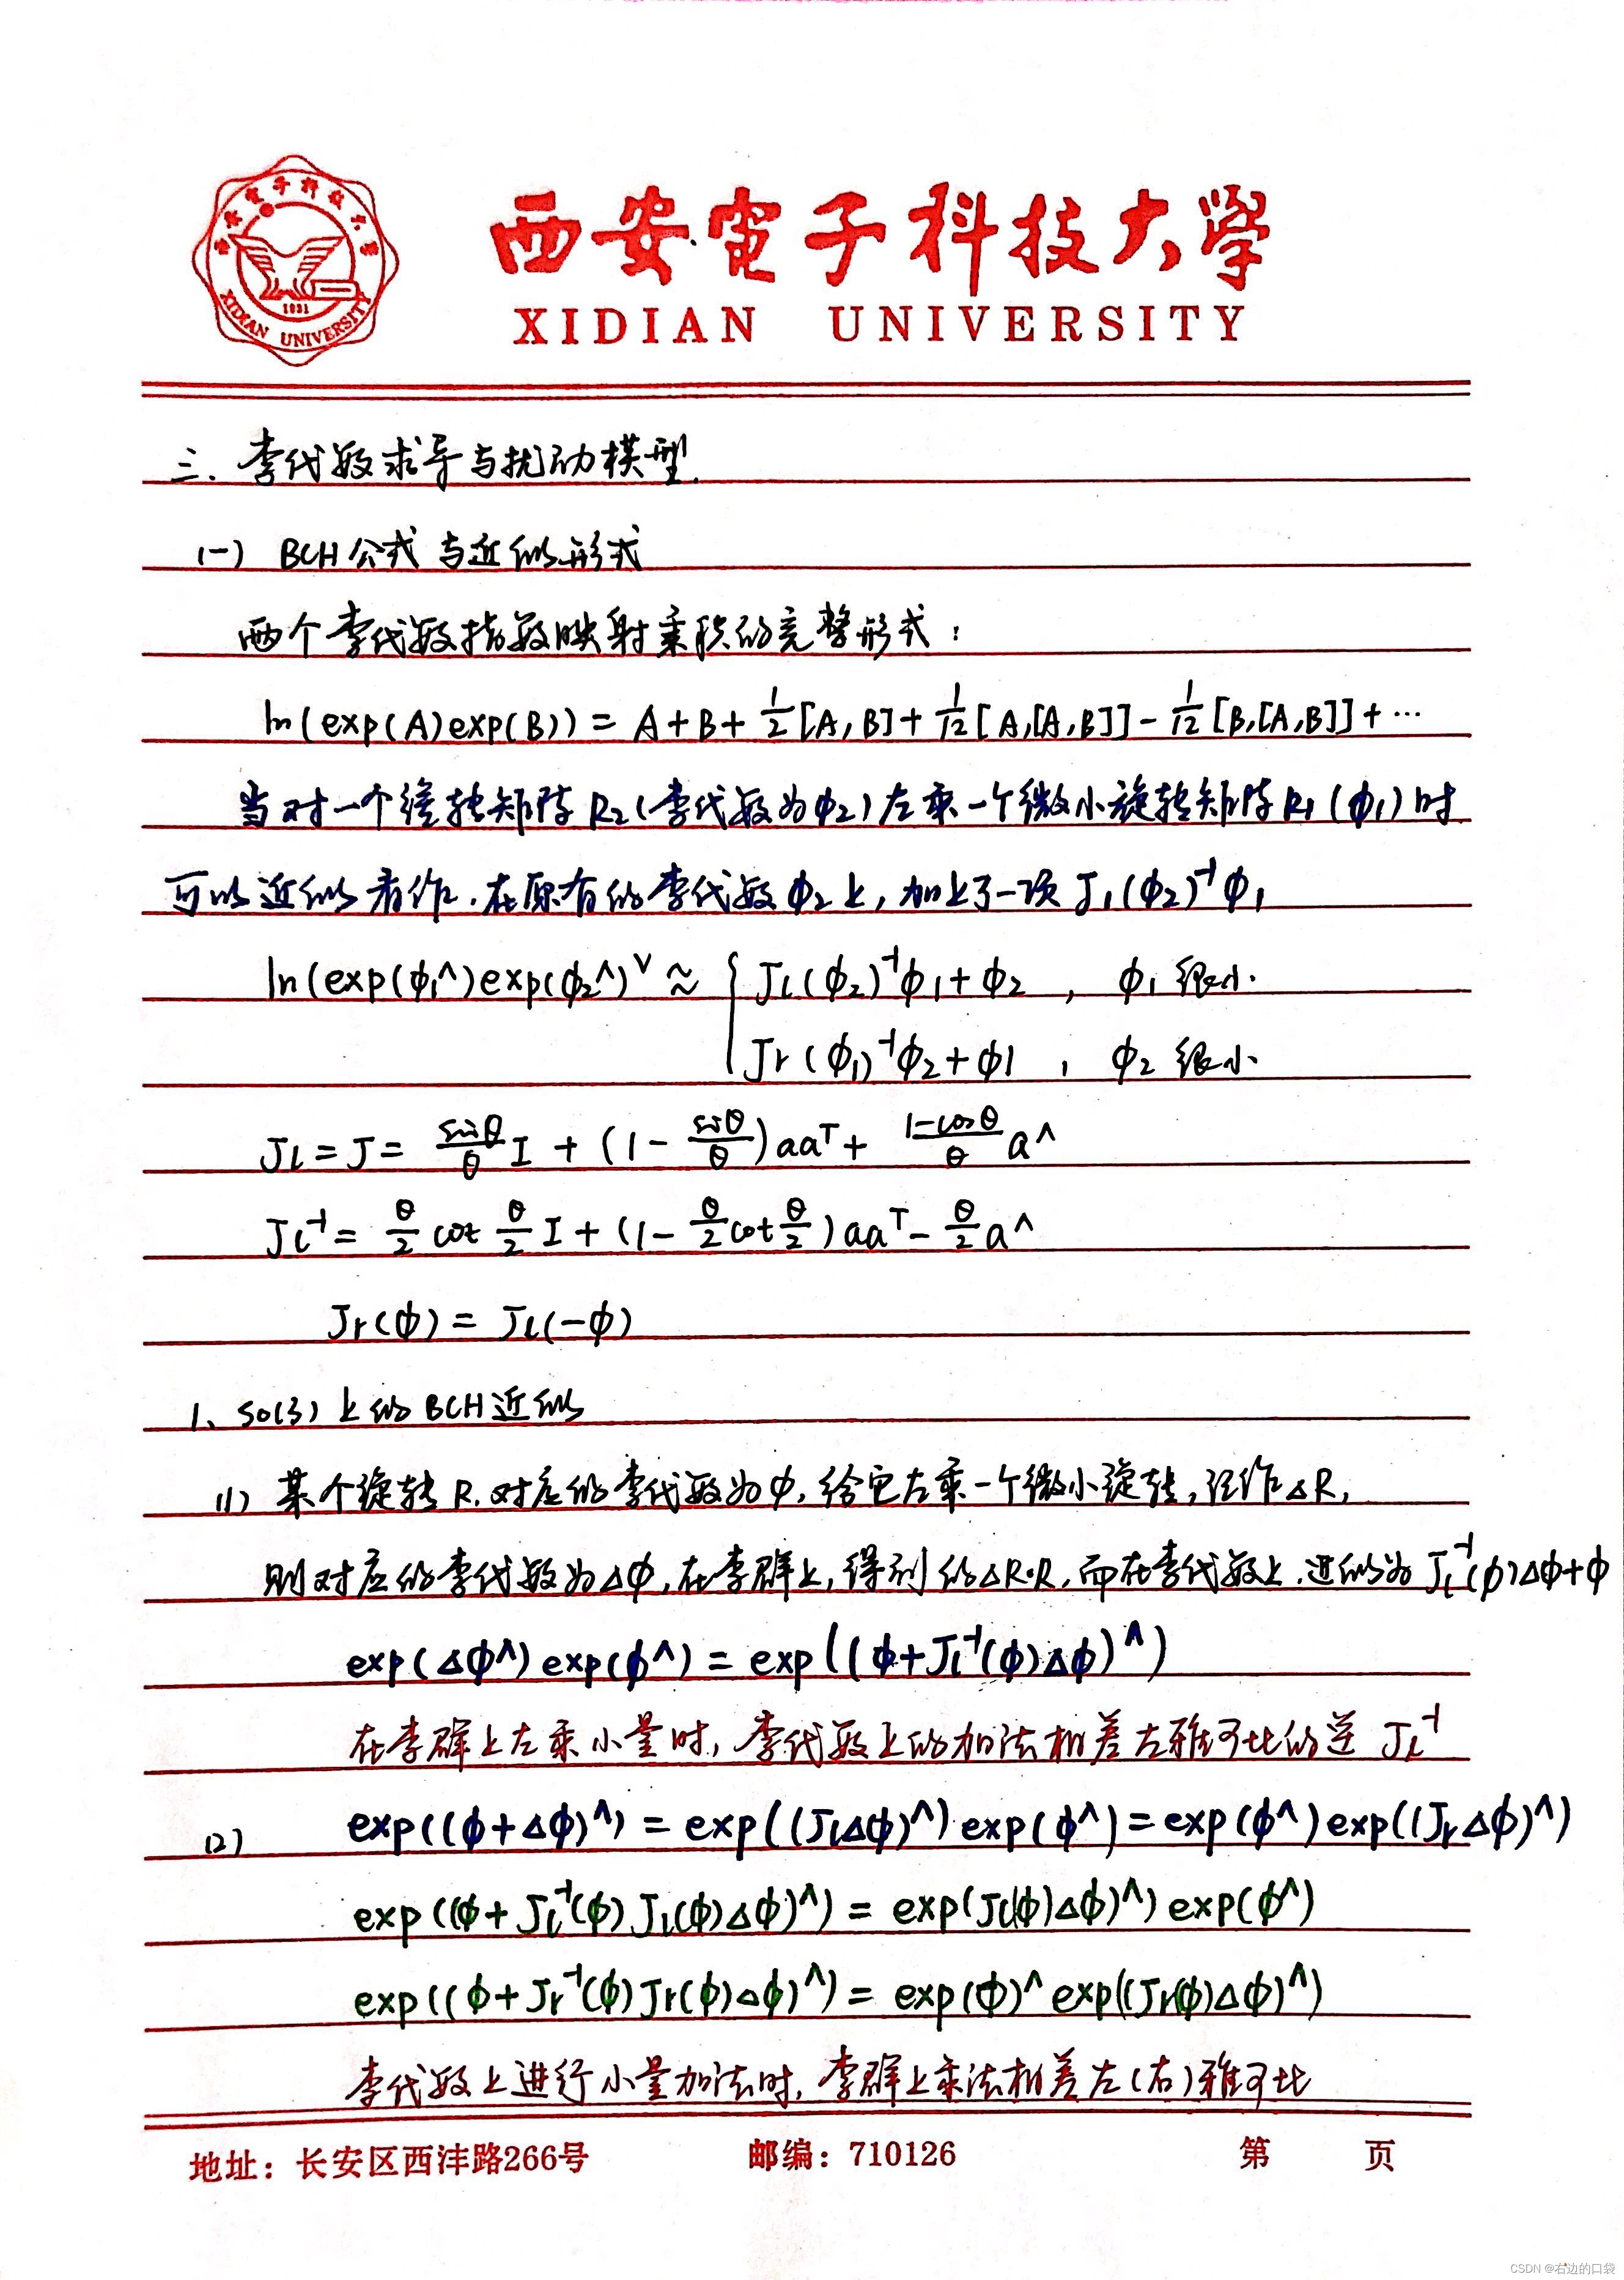 西安電子科技大學
XIDIAN UNIVERSITY
西安電子科技大學
1931
XIDIAN UNIVERSITY
三、李代数求导与扰动模型.
(一) BCH公式与近似形式
两个李代数指数映射乘积的完整形式:
ln(exp(A)exp(B)) = A+B+ 1/2[A,B]+ 1/12[A,[A,B]]- 1/12[B,[A,B]]+ ⋯
当对一个旋转矩阵R₂(李代数为ϕ₂)左乘一个微小旋转矩阵R₁(ϕ₁)时
可以近似看作,在原有的李代数ϕ₂上,加上了一项 Jₗ(ϕ₂)⁻¹ϕ₁
ln(exp(ϕ₁^)exp(ϕ₂^)ⱽ ≈ { Jₗ(ϕ₂)⁻¹ϕ₁+ϕ₂ , ϕ₁很小.
Jr(ϕ₁)⁻¹ϕ₂+ϕ1 , ϕ₂很小.
Jₗ=J= sinθ/θ I + (1- sinθ/θ)aaᵀ+ 1-cosθ/θ a^
Jₗ⁻¹= θ/2 cot θ/2 I+(1- θ/2 cot θ/2)aaᵀ- θ/2 a^
Jr(ϕ) = Jₗ(-ϕ)
1、SO(3)上的BCH近似
(1) 某个旋转R,对应的李代数为ϕ,给它左乘一个微小旋转,记作△R,
则对应的李代数为△ϕ,在李群上,得到的△R·R,而在李代数上,近似为Jₗ⁻¹(ϕ)△ϕ+ϕ
exp(△ϕ^)exp(ϕ^) = exp((ϕ+Jₗ⁻¹(ϕ)△ϕ)^)
在李群上左乘小量时,李代数上的加法相差左雅可比的逆Jₗ⁻¹
(2) exp((ϕ+△ϕ)^) = exp((Jₗ△ϕ)^)exp(ϕ^)=exp(ϕ^)exp((Jr△ϕ)^)
exp((ϕ+Jₗ⁻¹(ϕ)Jₗ(ϕ)△ϕ)^) = exp(Jₗ(ϕ)△ϕ)^)exp(ϕ^)
exp((ϕ+Jr⁻¹(ϕ)Jr(ϕ)△ϕ)^) = exp(ϕ)^exp((Jr(ϕ)△ϕ)^)
李代数上进行小量加法时,李群上乘法相差左(右)雅可比
地址：长安区西沣路266号 邮编：710126 第 页
CSDN @右边的口袋